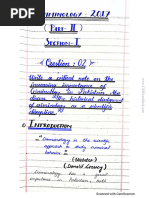 CRIMINOLOGY - 2017
( PART - II )
SECTION - I
< Question : 02 >
Write a critical note on the
increasing importance of
Criminology in Pakistan. Also
share the historical background
of criminology as a scientific
discipline.
① INTRODUCTION
"Criminology is the scientific
approach to study criminal
behavior."
(Webster)
(Donald Cressey)
Criminology has a great
importance in Pakistan
Scanned with CamScanner